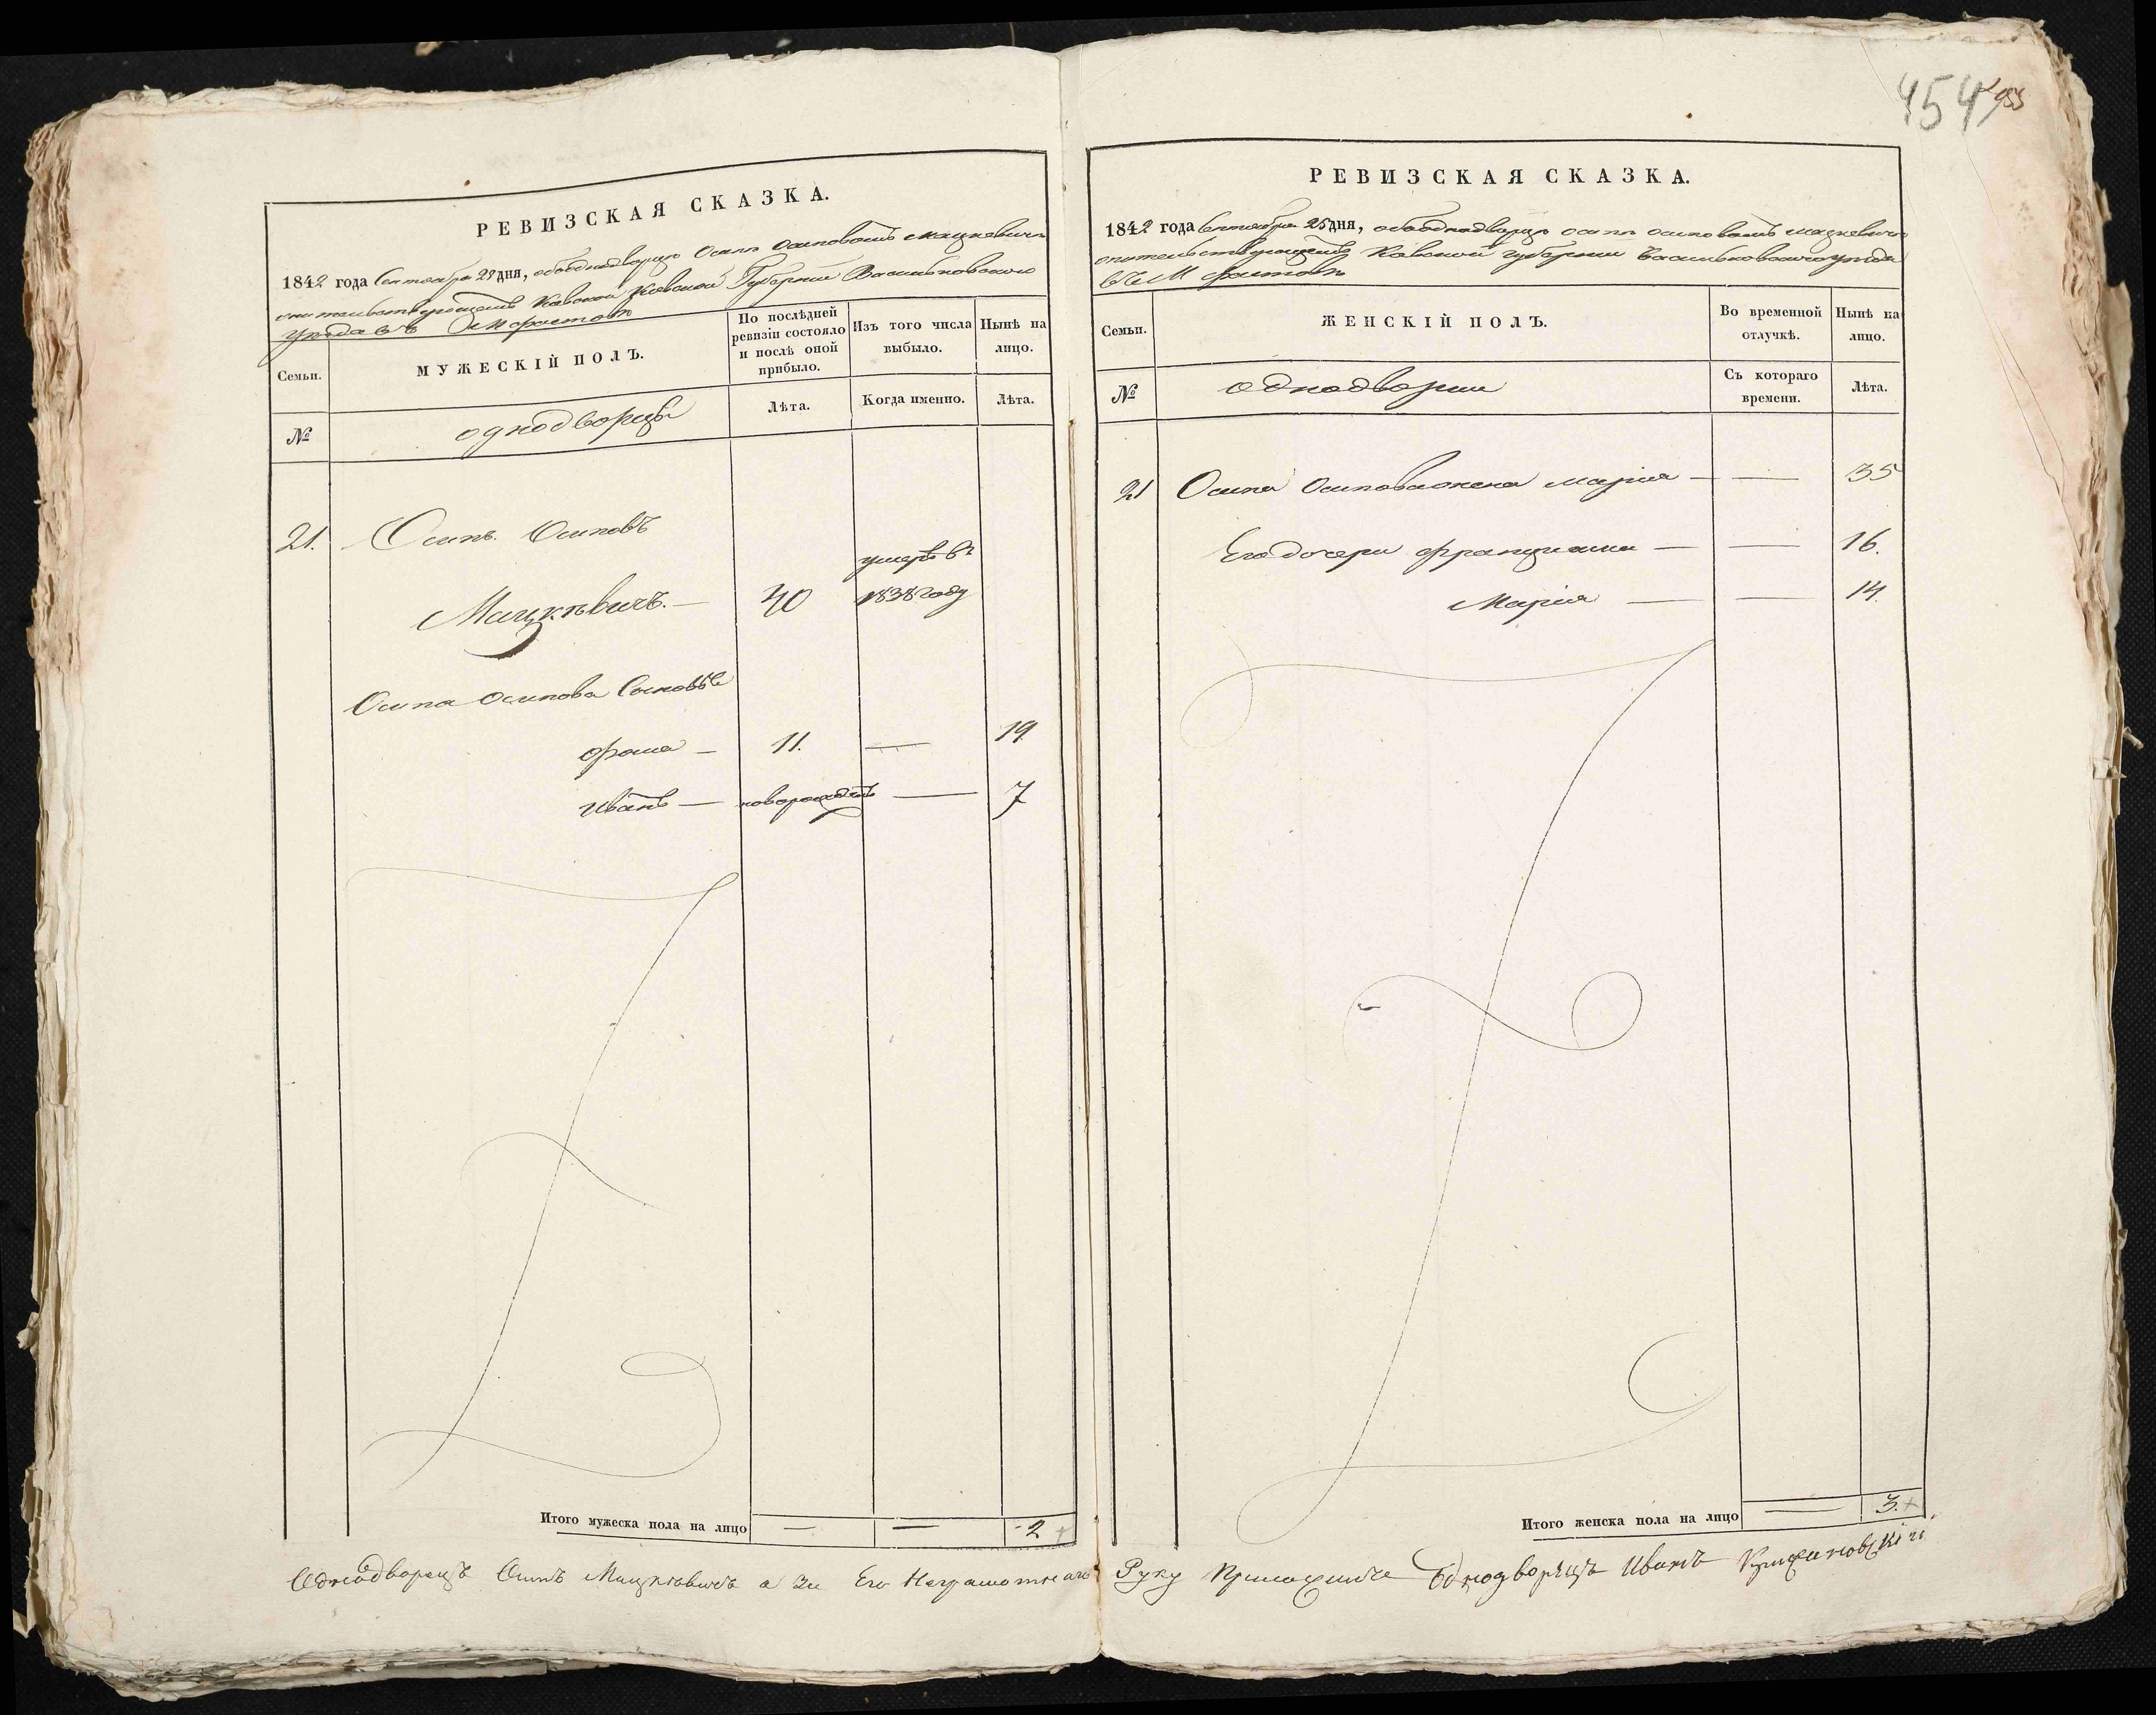 454
955
РЕВИЗСКАЯ СКАЗКА.
1842 года Сентября 25 дня, ободнодворце Осипе Осиповомъ Мацкевиче
жительствующемъ Киевской Губернии Васильковского
уезда въ М Фастове
Семьи.
МУЖЕСКІЙ ПОЛЪ.
По послѣдней ревизіи состояло и послѣ оной прибыло.
Изъ того числа выбыло.
Нынѣ на лицо.
№
однодворцы
Лѣта.
Когда именно.
Лѣта.
21. Осипъ Осиповъ
умеръ въ
Мацкѣвичъ. — 40 1838 году
Осипа Осипова Сыновья
Фома — 11. — 19
Иванъ — новорожденъ — 7
Итого мужеска пола на лицо — — 2
Однодворецъ Осипъ Мацкѣвичъ а За Его Неграмотнаго
РЕВИЗСКАЯ СКАЗКА.
1842 года Сентября 25 дня, ободнодворце Осипе Осиповомъ Мацкевиче
жительствующемъ Киевской Губернии Васильковского уезда
въ М Фастове
Семьи.
ЖЕНСКІЙ ПОЛЪ.
Во временной отлучкѣ.
Нынѣ на лицо.
№
однодворки
Съ котораго времени.
Лѣта.
21 Осипа Осипова жена Марія — — 35
Его дочери Францишка — — 16.
Марія — — 14.
Итого женска пола на лицо — 3.
Руку Приложилъ Однодворецъ Иванъ